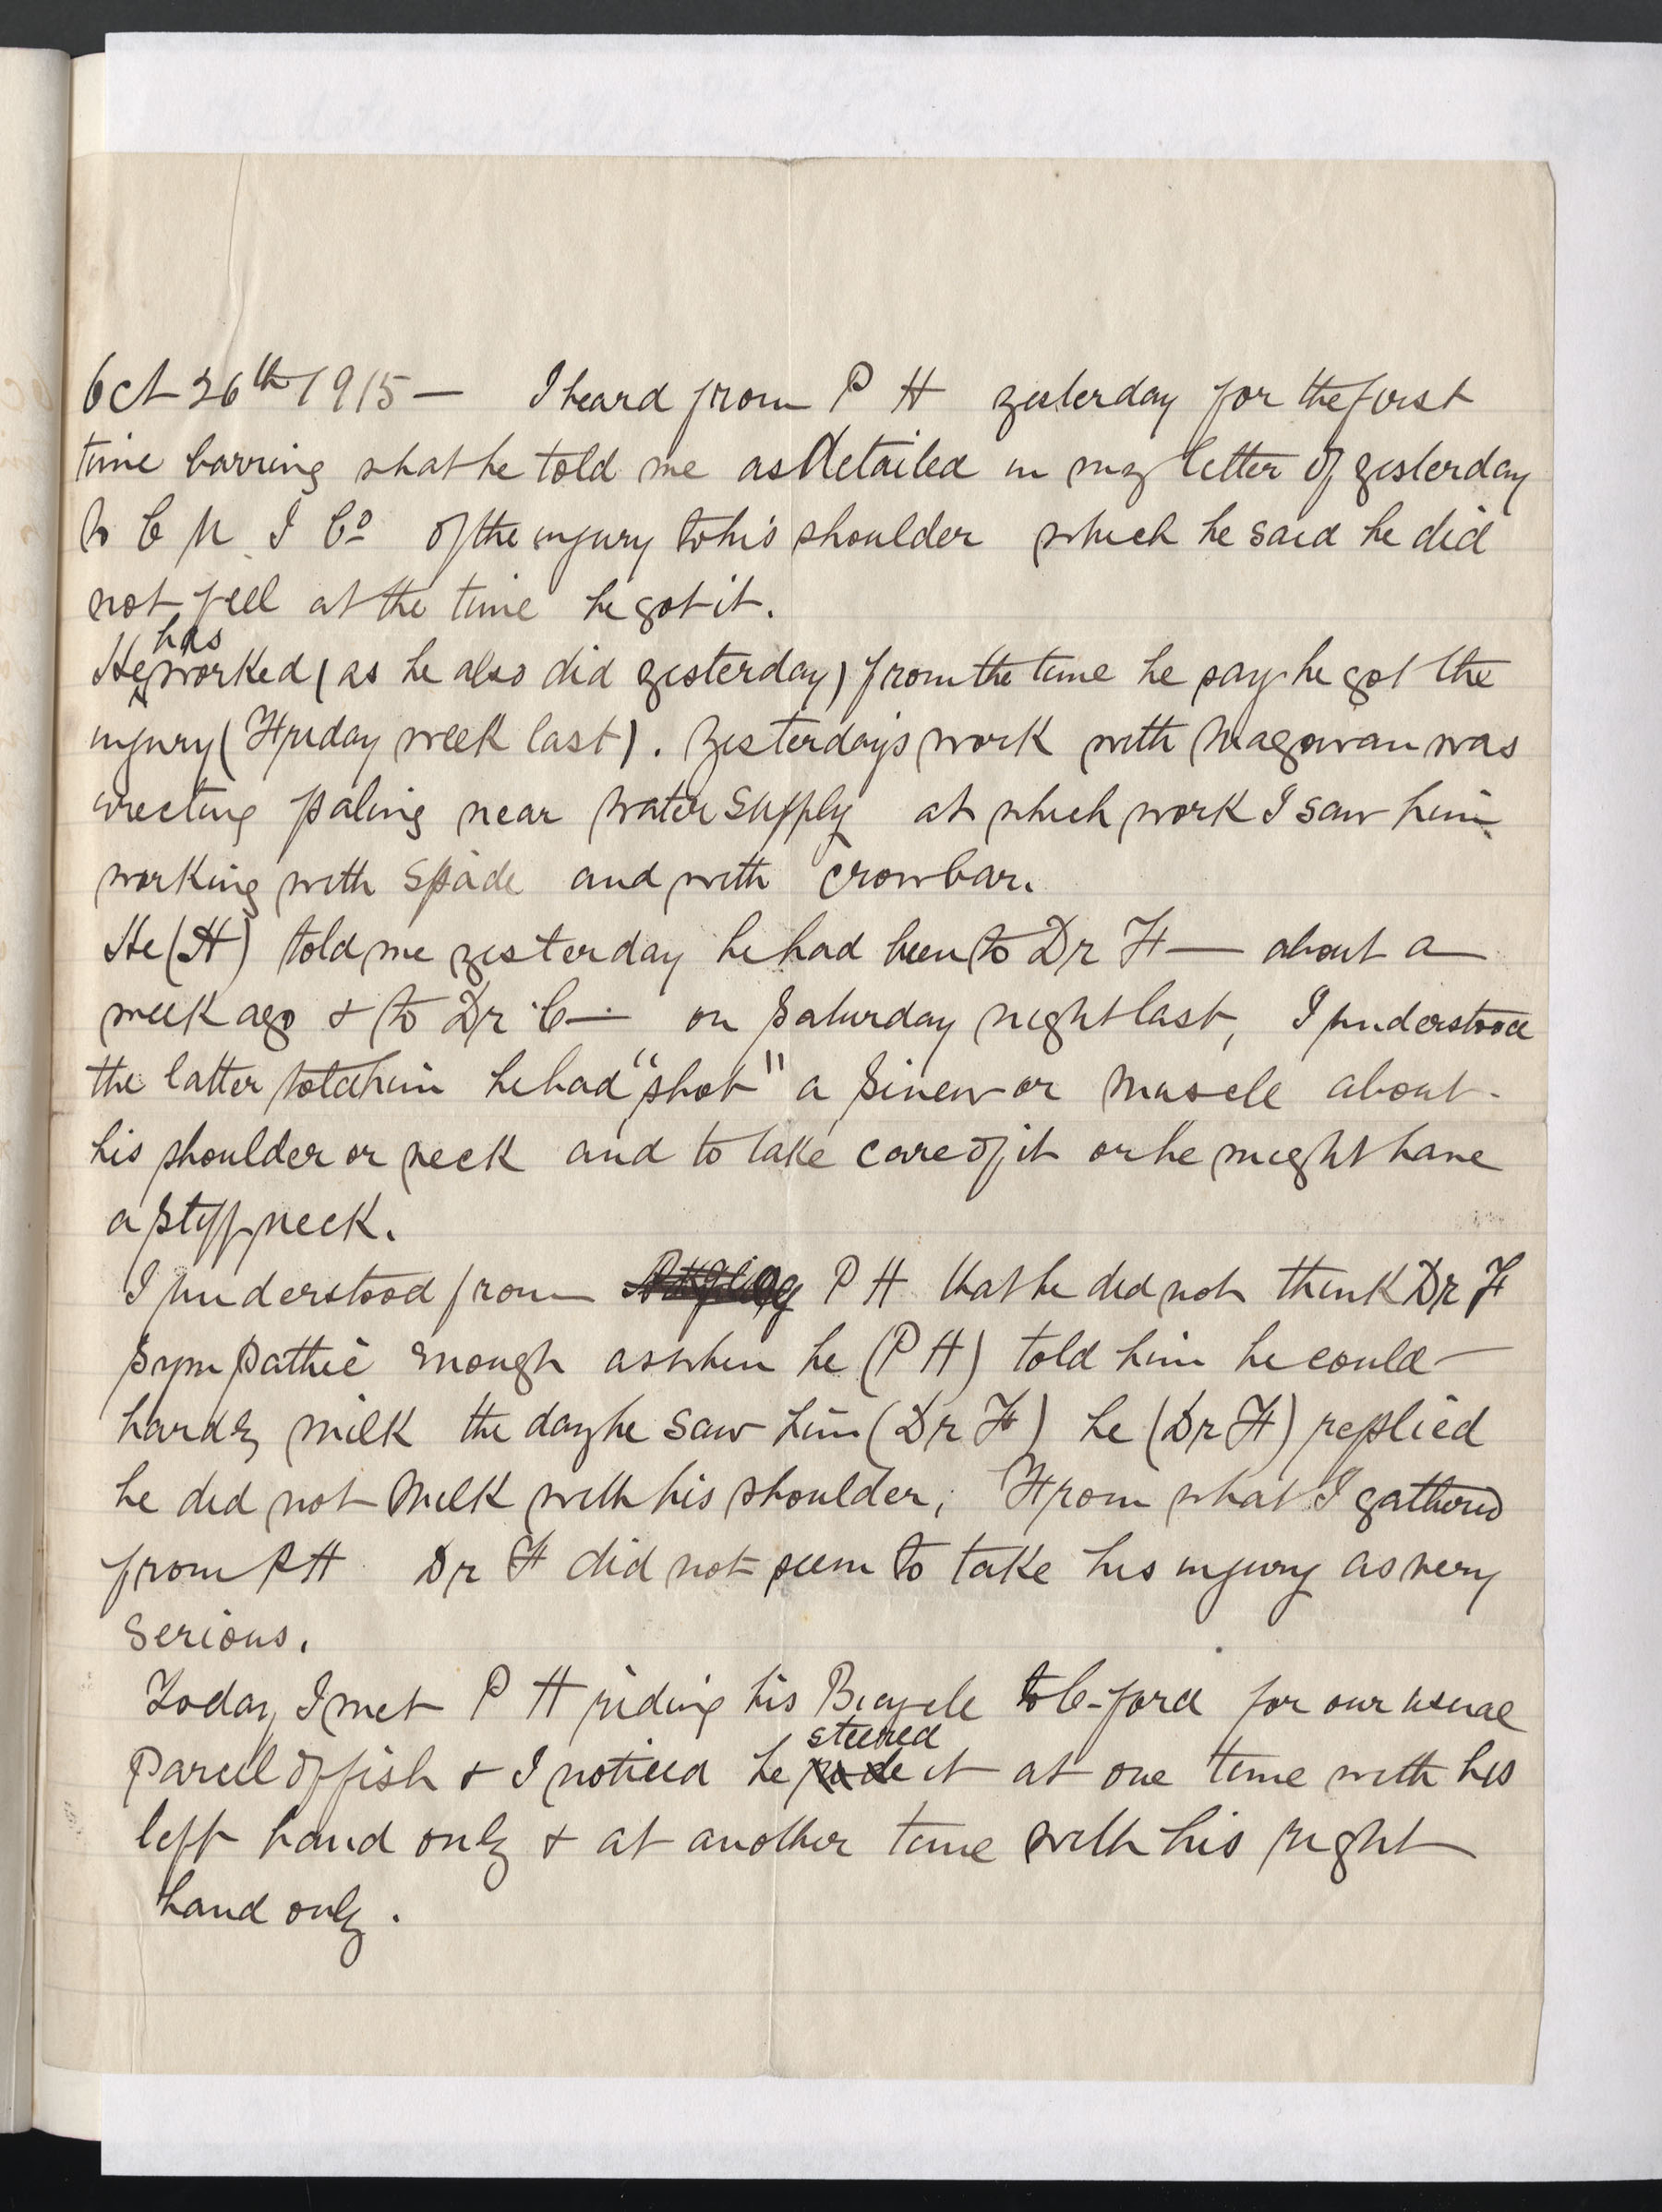 Oct 26th 1915 — I heard from P H yesterday for the first
time barring what he told me as detailed in my letter of yesterday
to C I Co of the injury to his shoulder which he said he did
not feel at the time he got it.
He has worked (as he also did yesterday) from the time he says he got the
injury (Friday week last). Yesterday's work with Magowan was
erecting paling near Water Supply at which work I saw him
working with spade and with crowbar.
He (H) told me yesterday he had been to Dr F — about a
week ago & to Dr C — on Saturday night last, I understood
the latter told him he had "shot" a sinew or muscle about
his shoulder or neck and to take care of it or he might have
a stiff neck.
I understood from P H that he did not think Dr F
sympathic enough as when he (P H) told him he could
hardly milk the day he saw him (Dr F) he (Dr F) replied
he did not milk with his shoulder; From what I gathered
from P H Dr F did not seem to take his injury as very
serious.
Today I met P H riding his Bicycle to C-ford for our usual
parcel of fish & I noticed he rode steered it at one time with his
left hand only & at another time with his right
hand only.